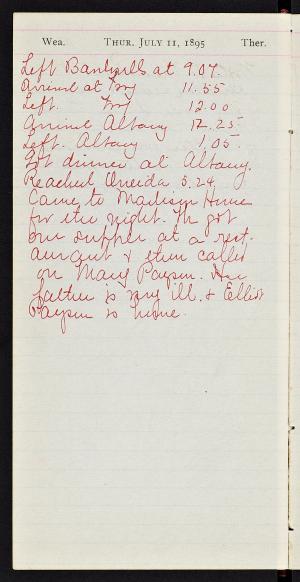 Wea. THUR. JULY 11, 1895 Ther.
Left at 9.07.
Arrived at Troy 11.55
Left. Troy 12.00
Arrived Albany 12.25
Left. Albany 1.05.
Got dinner at Albany.
Reached Oneida 5.24
Came to Madison House
for the night. We got
our supper at a rest-
aurant & then called
on Mary Payson. Her
father is very ill. & Elliot
Payson is home.